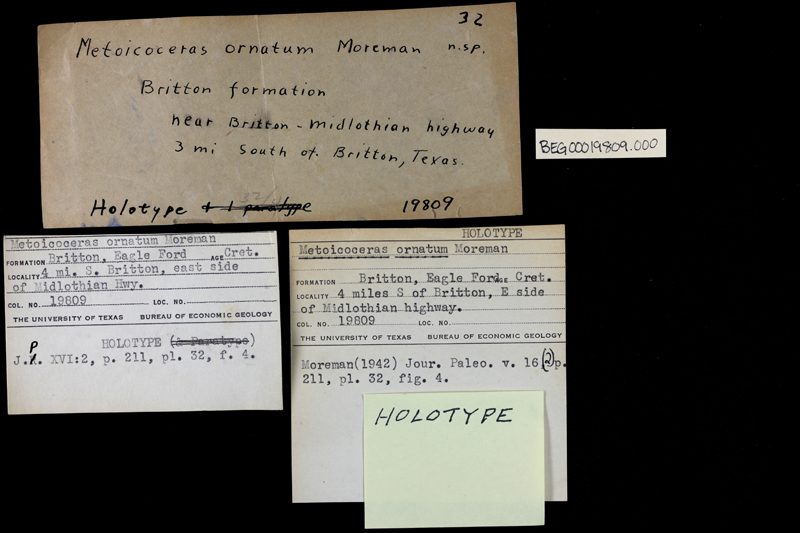 32
Metoicoceras ornatum Moreman n.sp.
Britton formation
near Britton - Midlothian highway
3 mi South of Britton, Texas.
Holotype + 1 paratype 19809
BEG00019809.000
Metoicoceras ornatum Moreman
FORMATION Britton, Eagle Ford AGE Cret.
LOCALITY 4 mi. S. Britton, east side
of Midlothian Hwy.
COL. NO. 19809 LOC. NO.
THE UNIVERSITY OF TEXAS BUREAU OF ECONOMIC GEOLOGY
HOLOTYPE (& Paratype)
J.P. XVI:2, p. 211, pl. 32, f. 4.
HOLOTYPE
Metoicoceras ornatum Moreman
FORMATION Britton, Eagle Ford AGE Cret.
LOCALITY 4 miles S of Britton, E side
of Midlothian highway.
COL. NO. 19809 LOC. NO.
THE UNIVERSITY OF TEXAS BUREAU OF ECONOMIC GEOLOGY
Moreman(1942) Jour. Paleo. v. 16(2)p.
211, pl. 32, fig. 4.
HOLOTYPE